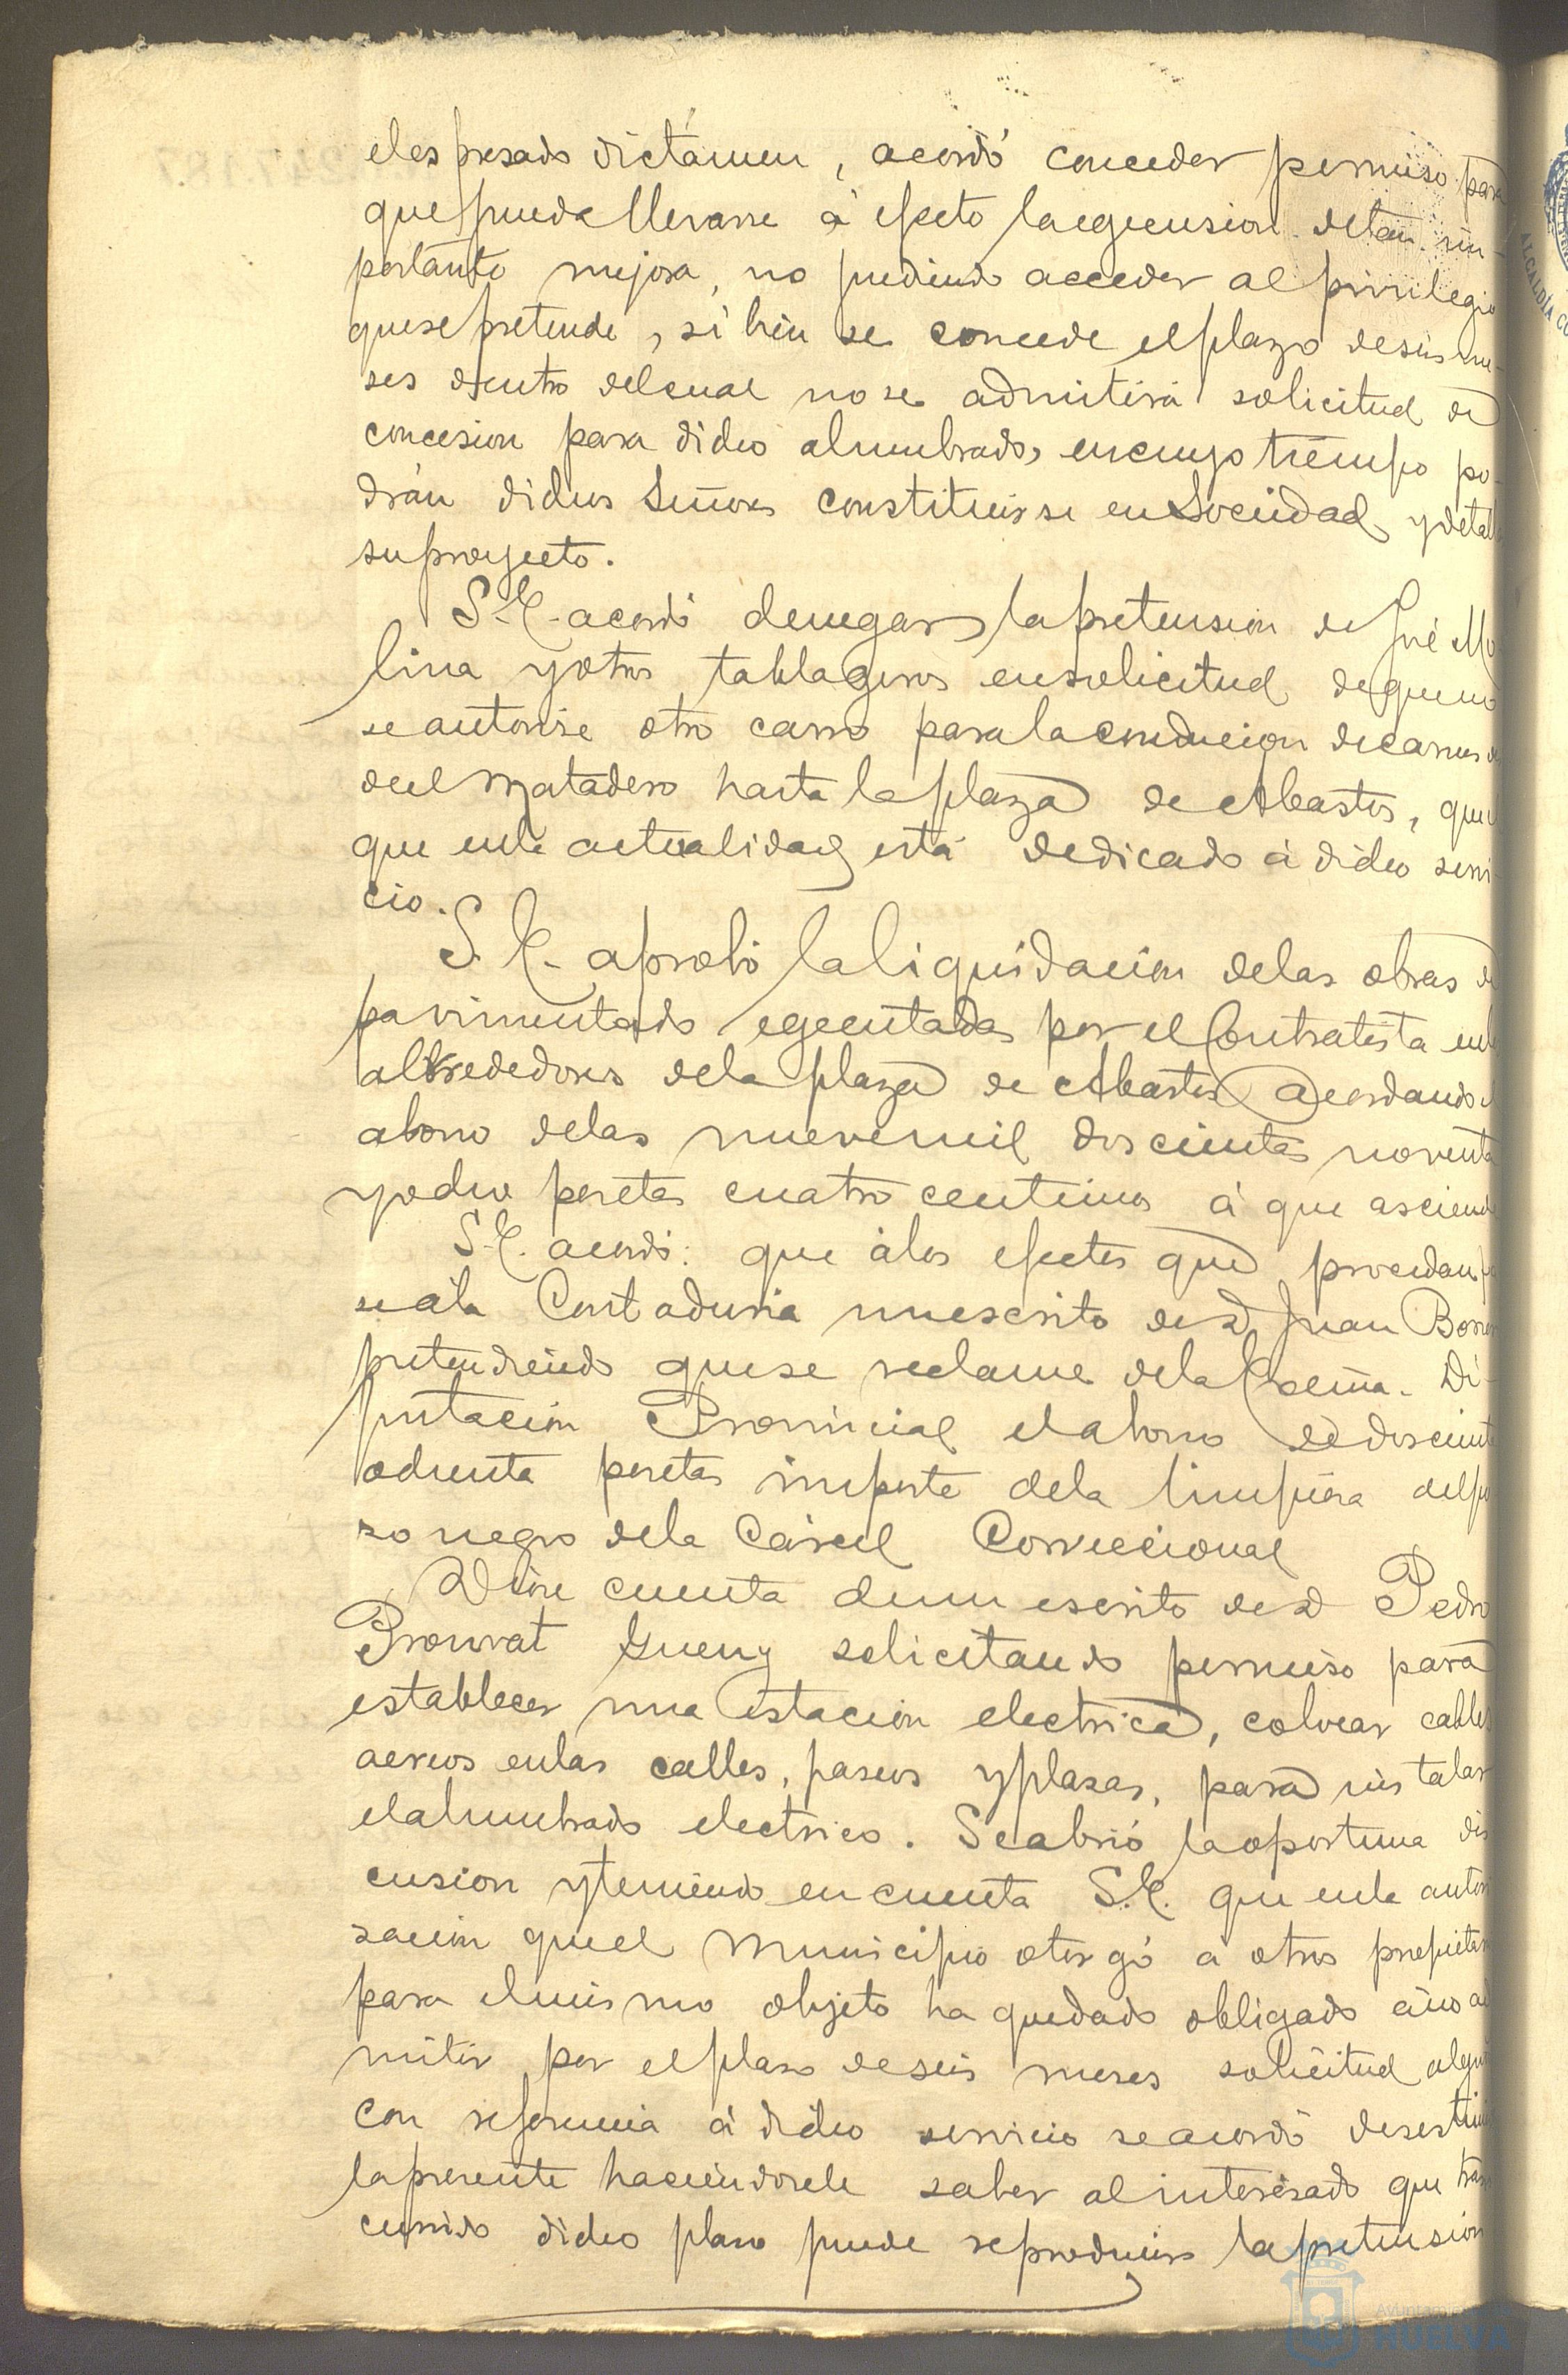 el espresado dictámen, acordó conceder permiso para
que pueda llevarse á efecto la egecusion de tan im-
portante mejora, no pudiendo acceder al privilegio
que se pretende, si bien se concede el plazo de seis me-
ses dentro del cual no se admitirá solicitud de
concesion para dicho alumbrado, en cuyo tiempo po-
drán dichos Señores constituirse en Sociedad y detall
su proyecto.
S.E. acordó denegar la pretension de José Mo
lina y otros tablageros en solicitud de que no
se autorise otro carro para la conduccion de carnes
del Matadero hasta la plaza de Abastos, que
que en la actualidad está dedicado á dicho servi-
cio.
S.E. aprobó la liquidacion de las obras de
pavimentado egecutadas por el Contratista en
alrrededores de la plaza de Abastos acordando el
abono de las nueve mil doscientas noventa
y ocho pesetas cuatro centimos á que asciend
S.E. acordó: que á los efectos que procedan
se á la Contaduria un escrito de D. Juan Borrer
pretendiendo que se reclame de la Excma. Di-
putacion Provincial el abono de doscient
ochenta pesetas importe de la limpiesa del po
so negro de la Cárcel Correccional
Dióse cuenta de un escrito de D. Pedro
solicitando permiso para
establecer una estacion electrica, colocar cables
aereos en las calles, paseos y plazas, para instalar
el alumbrado electrico. Se abrió la oportuna dis
cusion y teniendo en cuenta S.E. que en la autori
sacion que el Municipio otorgó a otros propietar
para el mismo objeto ha quedado obligado á no ad
mitir por el plaso de seis meses solicitud algun
con referencia á dicho servicio se acordó desestim
la presente haciendosele saber al interesado que tras
currido dicho plaso puede reproducir la pretension
ALCALDÍA CO
Ayuntamiento
HUELVA